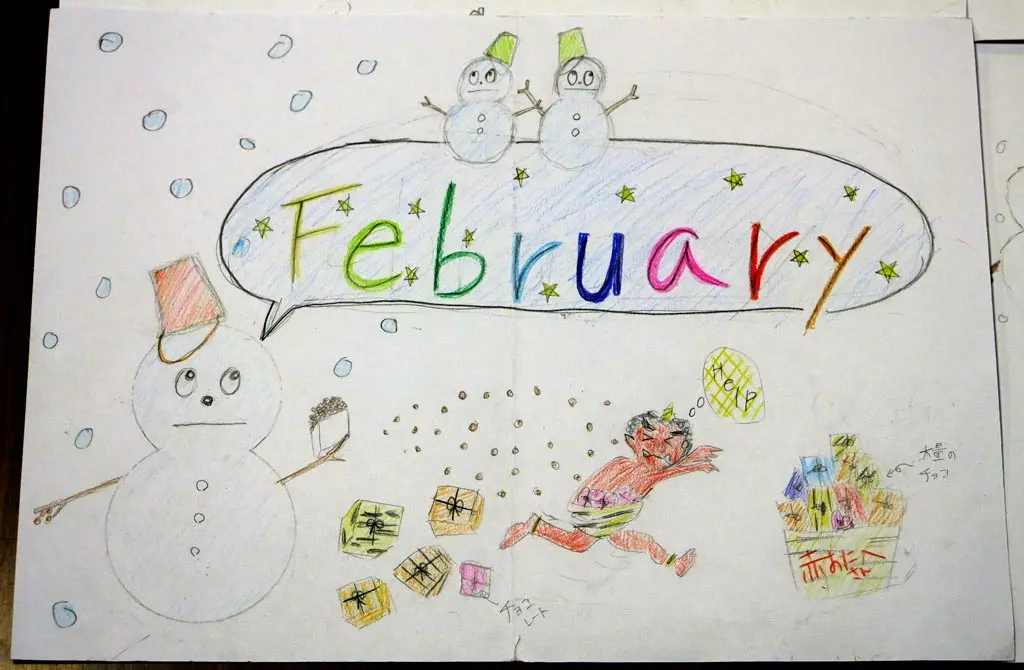 February
Help
大量の
チョコ
赤おにさんへ
チョコ
レート